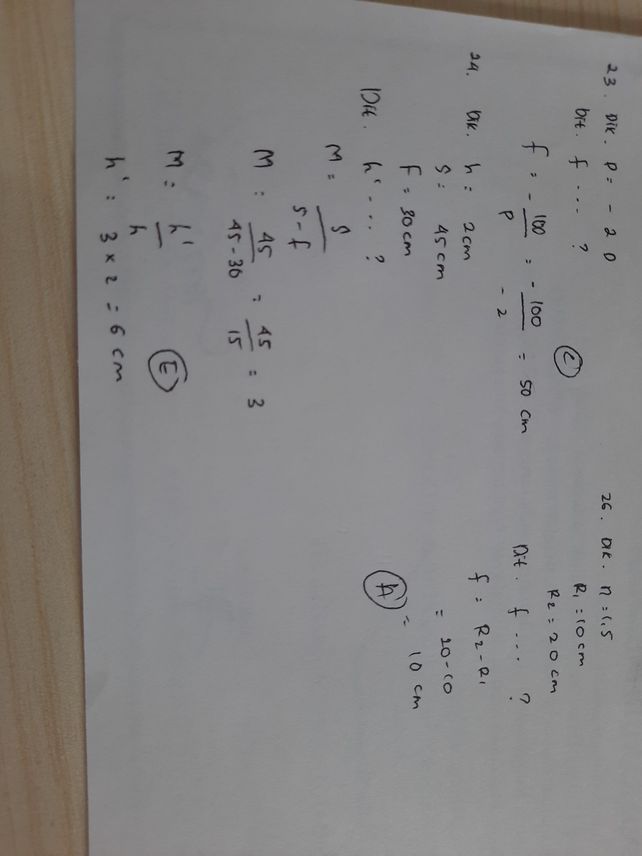 23. Dik. P = - 2 D
Dit. f ... ?
f = - 100/P = - 100/-2 = 50 cm
C
24. Dik. h = 2cm
S = 45 cm
F = 30 cm
Dit. h' ... ?
M = S/S-f
M : 45/45-30 = 45/15 = 3
M : h'/h
E
h' : 3 x 2 = 6 cm
26. Dik. n = 1,5
R₁ = 10 cm
R₂ = 20 cm
Dit. f ... ?
f : R₂ - R₁
= 20-10
= 10 cm
A